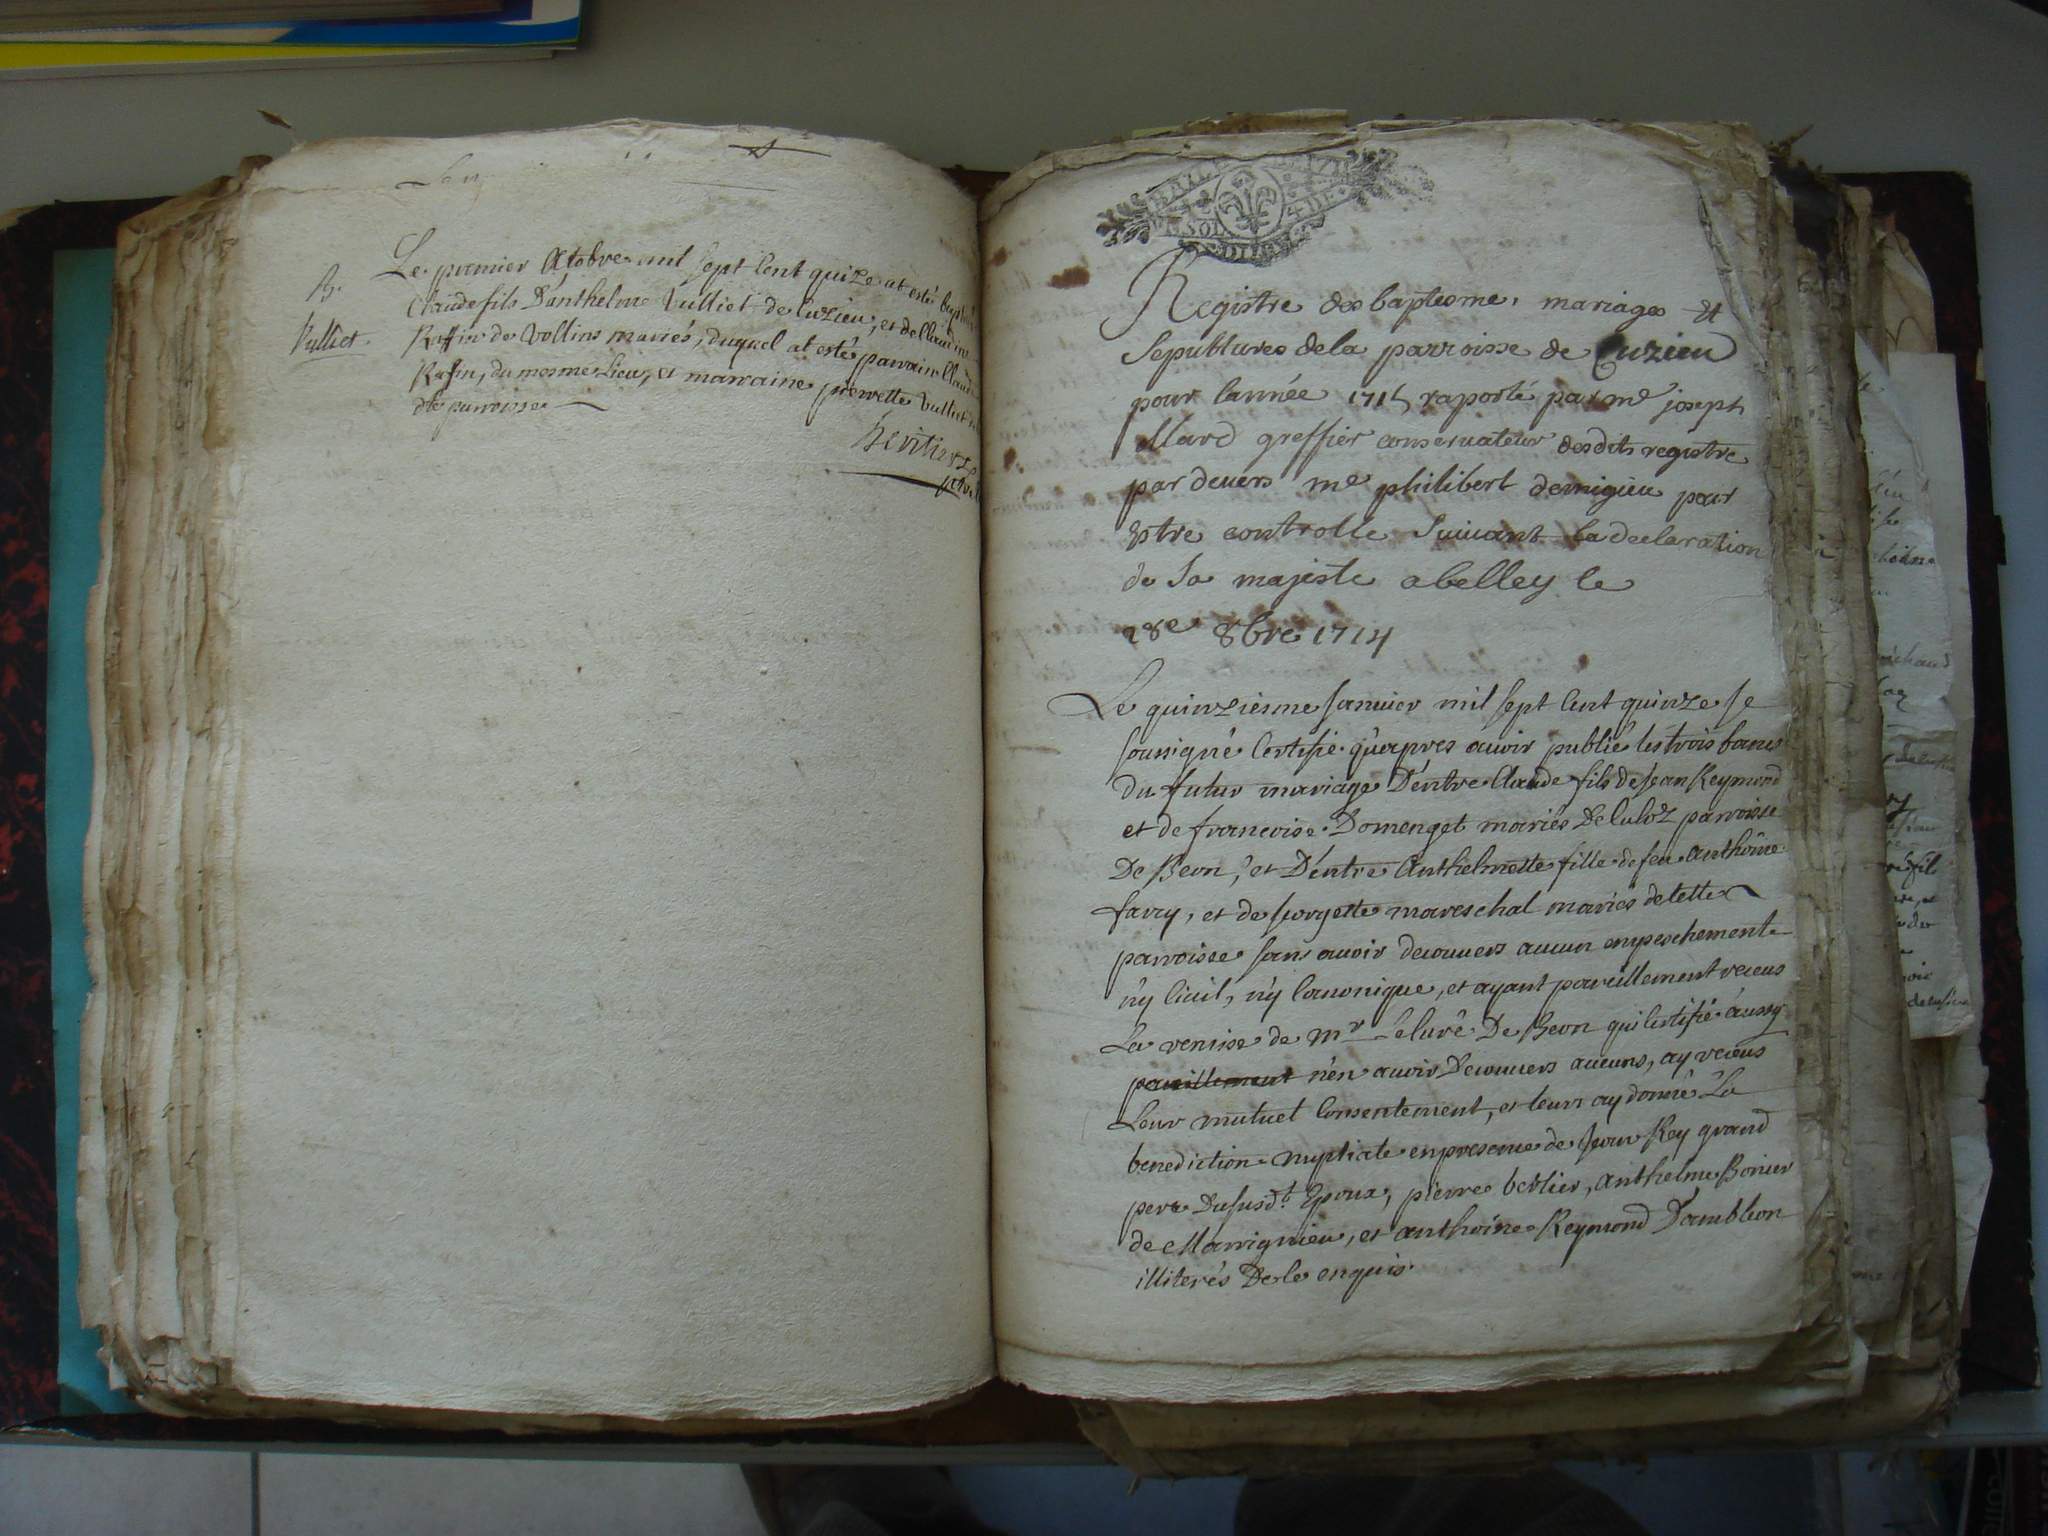 Le premier Octobre mil sept Cent quize at esté bapt
B.
Claude fils D'anthelme Vulliet de Cuzieu, et de Claudine
Vulliet.
Raffin de Vollins mariés, duquel at esté parrain Claude
Rafin, du mesme Lieu, et marraine pierrette Vulliet
dte parroisse
héritier
Registre des baptesme, mariages et
Sepultures dela parroisse de Cuzieu
pour lannée 1715 raporté par me joseph
Mard greffier conseruateur desdits registre
par deuers me philibert demigieu pour
Estre controlle Suiuant la declaration
de Sa majeste a belley le
28e 8bre 1714
Le quinziesme Januier mil sept Cent quinze Je
soussigné Certifie qu'apres auoir publié les trois bancs
du futur mariage D'entre Claude fils de Jean Reymond
et de francoise Domenget mariés De Culoz parroisse
De Beon, et D'entre Anthelmette fille de feu Anthoine
favry, et de Jorgette mareschal mariés de cette
parroisse sans auoir decouuers aucun empeschement
n'y Ciuil, n'y Canonique, et ayant pareillement receus
La remise de Mr Le Curé De Beon qui Certifie aussy
pareillement n'en auoir Decouuers aucuns, ay receus
Leur mutuel Consentement, et leurs ay donné La
benediction nuptiale en presence de Jean Rey grand
pere Du susdt Epoux, pierre berlier, Anthelme Bonier
de Marignieu, et anthoine Reymond D'ambleon
illiterés De le enquis